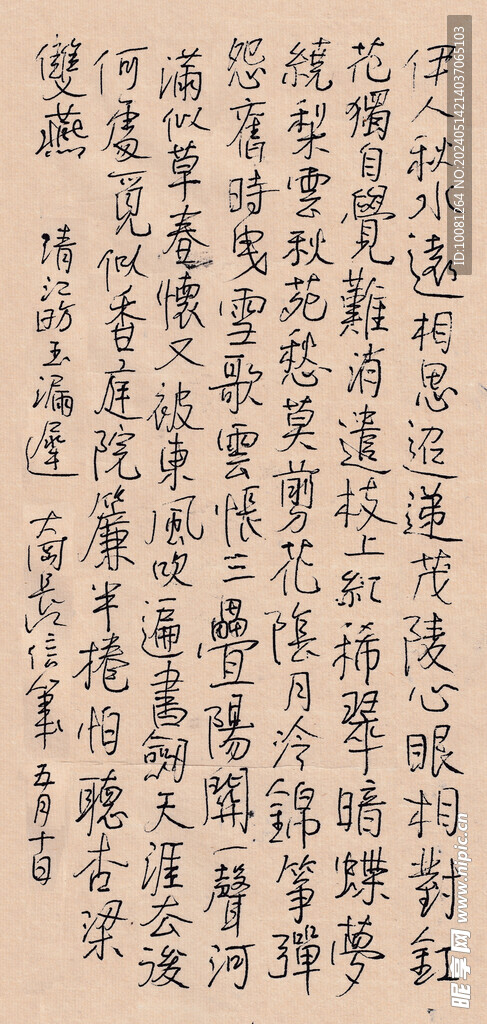 伊人秋水遠相思迢遞茂陵心眼相對釭
花獨自覺難消遣枝上紅稀翠暗蝶夢
繞梨雲秋苑愁莫剪花陰月冷錦箏彈
怨舊時曳雪歌雲悵三疊陽關一聲河
滿似草春懷又被東風吹遍書劍天涯去後
何處覓似香庭院簾半捲怕聽杏梁
雙燕
清江昉玉漏遲 大岡長信筆 五月十日
ID:10081264 NO:20240514214037065103
昵享网 www.nipic.cn